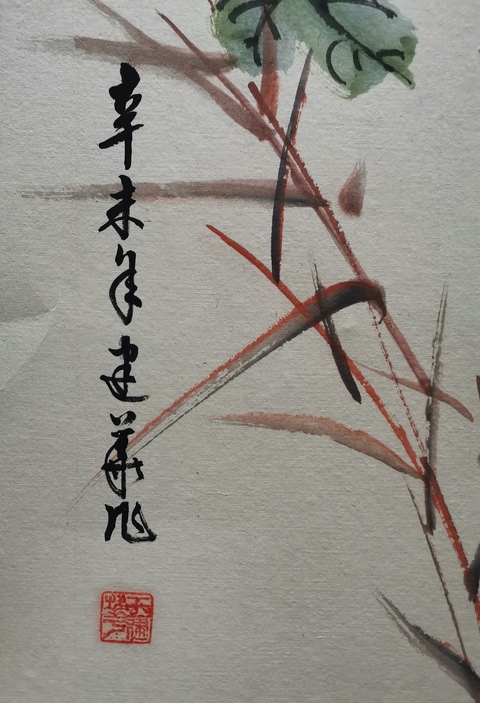 辛未年建華作